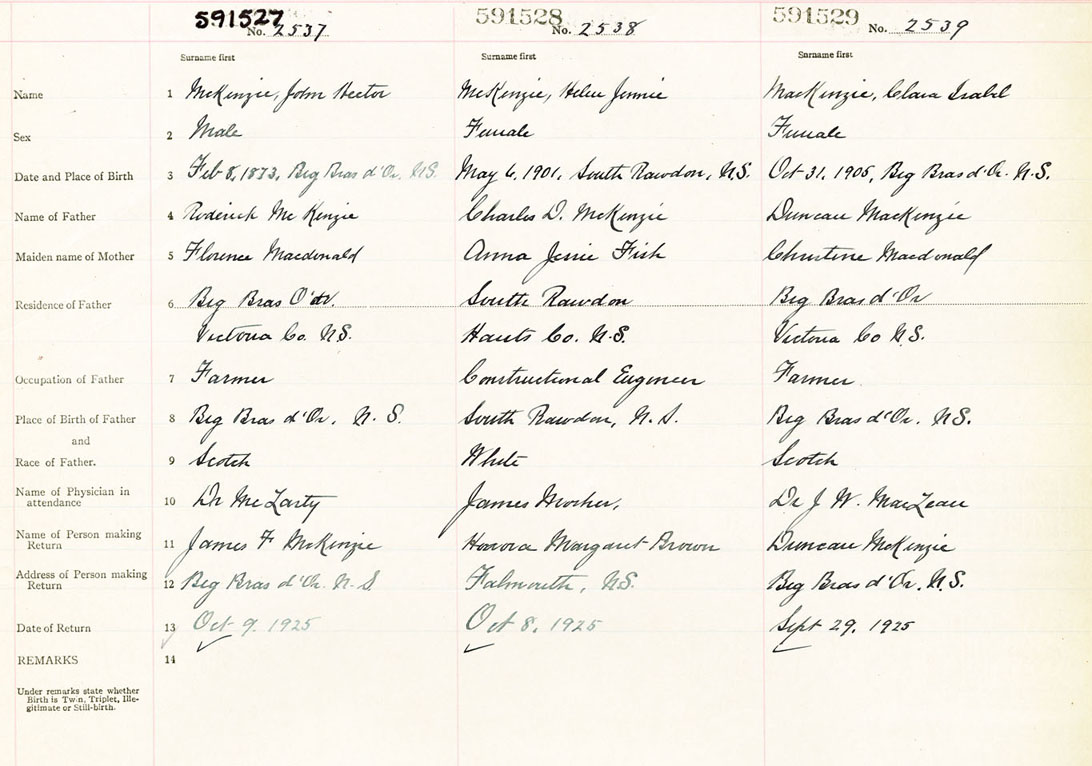 591527 591528 591529
No. 2537 No. 2538 No. 2539
Surname first Surname first Surname first
Name 1 McKenzie, John Hector McKenzie, Helen Jennie MacKenzie, Clara Isabel
Sex 2 Male Female Female
Date and Place of Birth 3 Feb 8, 1873, Big Bras d'Or. N.S. May 6, 1901, South Rawdon, N.S. Oct 31, 1905, Big Bras d'Or. N.S.
Name of Father 4 Roderick McKenzie Charles D. McKenzie Duncan MacKenzie
Maiden name of Mother 5 Florence Macdonald Anna Jessie Fish Christine Macdonald
Residence of Father 6 Big Bras O'dr. South Rawdon Big Bras d'Or
Victoria Co. N.S. Hants Co. N.S. Victoria Co N.S.
Occupation of Father 7 Farmer Constructional Engineer Farmer
Place of Birth of Father 8 Big Bras d'Or, N.S. South Rawdon, N.S. Big Bras d'Or. N.S.
and
Race of Father. 9 Scotch White Scotch
Name of Physician in
attendance 10 Dr McLarty James Mosher, Dr J. W. MacLean
Name of Person making
Return 11 James F McKenzie Honora Margaret Brown Duncan McKenzie
Address of Person making
Return 12 Big Bras d'Or. N.S Falmouth, N.S. Big Bras d'Or, N.S.
Date of Return 13 Oct 9, 1925 Oct 8, 1925 Sept 29, 1925
REMARKS 14
Under remarks state whether
Birth is Twin, Triplet, Ille-
gitimate or Still-birth.